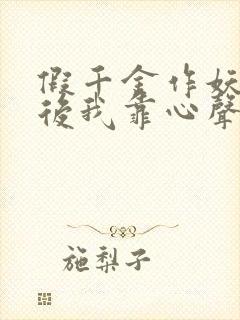 假千金作妖
後我靠心聲
施梨子